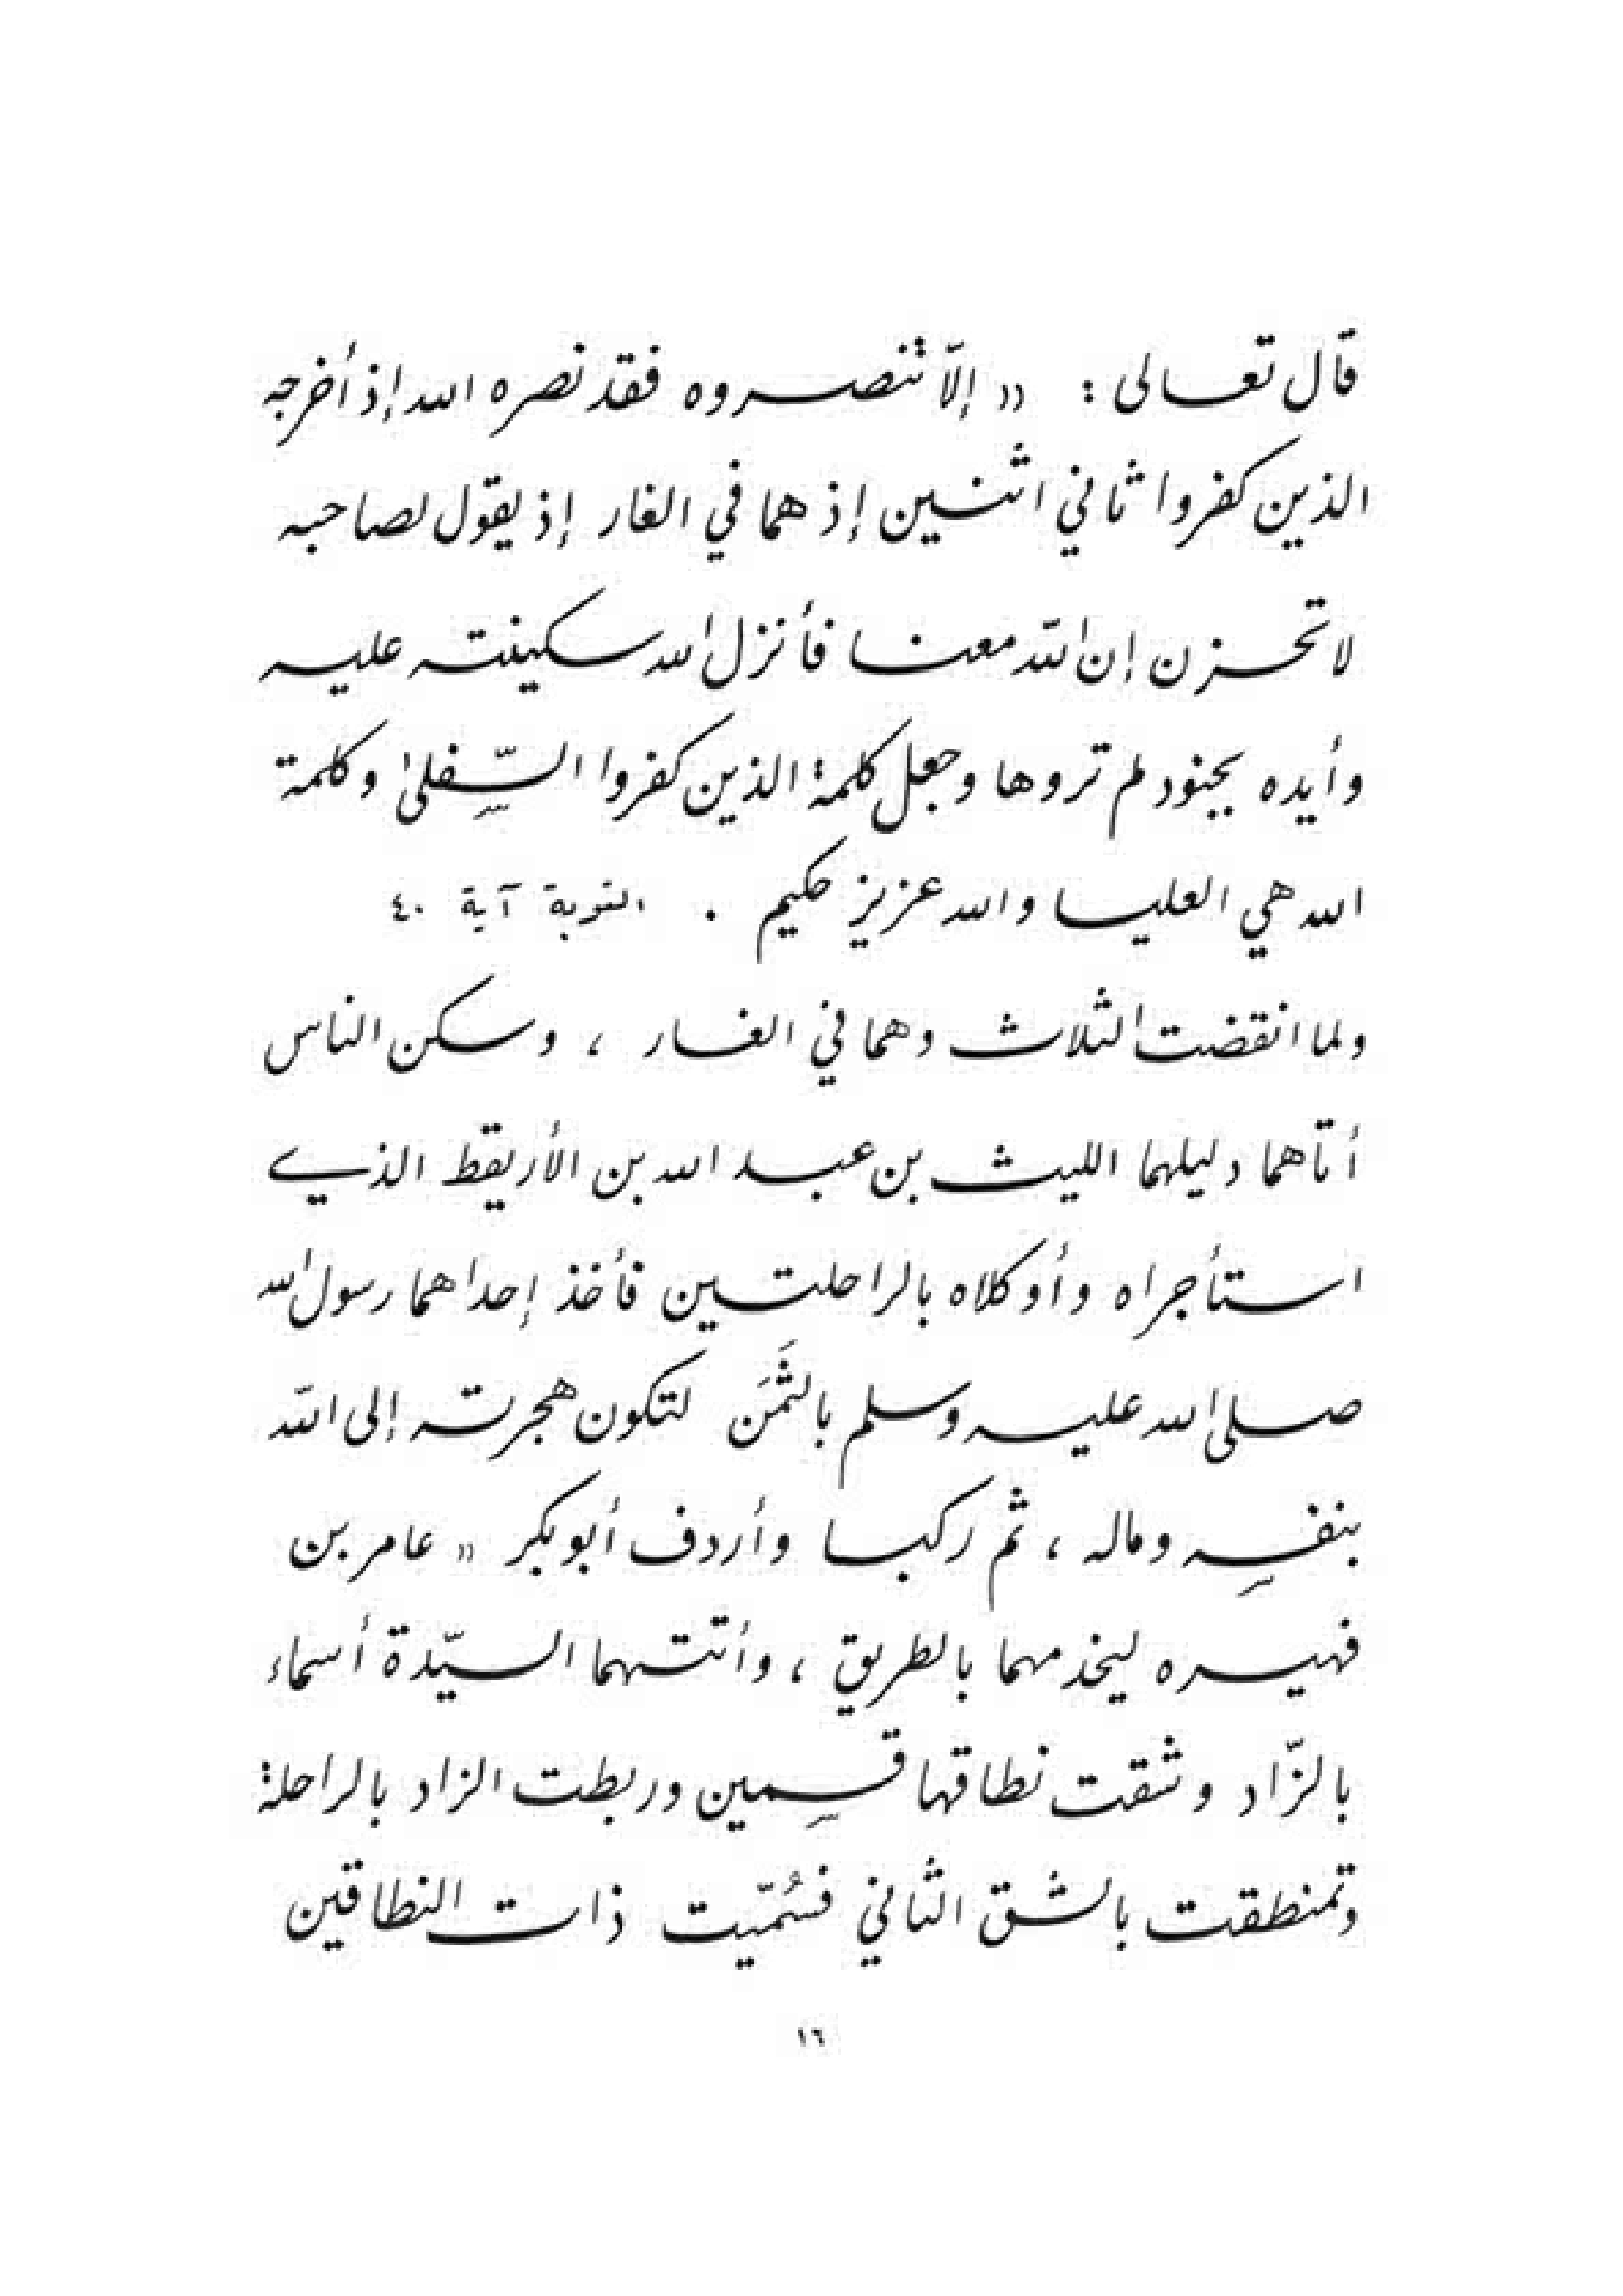 قال تعالى : « إلّا تنصروه فقد نصره الله إذ أخرجه
الذين كفروا ثاني اثنين إذ هما في الغار إذ يقول لصاحبه
لا تحزن إن الله معنا فأنزل الله سكينته عليه
وأيده بجنود لم تروها وجعل كلمة الذين كفروا السّفلى وكلمة
الله هي العليا والله عزيز حكيم . التوبة آية ٤٠
ولما انقضت الثلاث وهما في الغار ، وسكن الناس
أتاهما دليلهما الليث بن عبد الله بن الأريقط الذي
استأجراه وأوكلاه بالراحلتين فأخذ إحداهما رسول الله
صلى الله عليه وسلم بالثَمَن لتكون هجرته إلى الله
بنفسِه وماله ، ثم ركبا وأردف أبو بكر « عامر بن
فهيره ليخذمهما بالطريق ، وأتتهما السيّدة أسماء
بالزّاد وشقت نطاقها قسِمين وربطت الزاد بالراحلة
وتمنطقت بالشق الثاني فسُمّيت ذات النطاقين
١٦